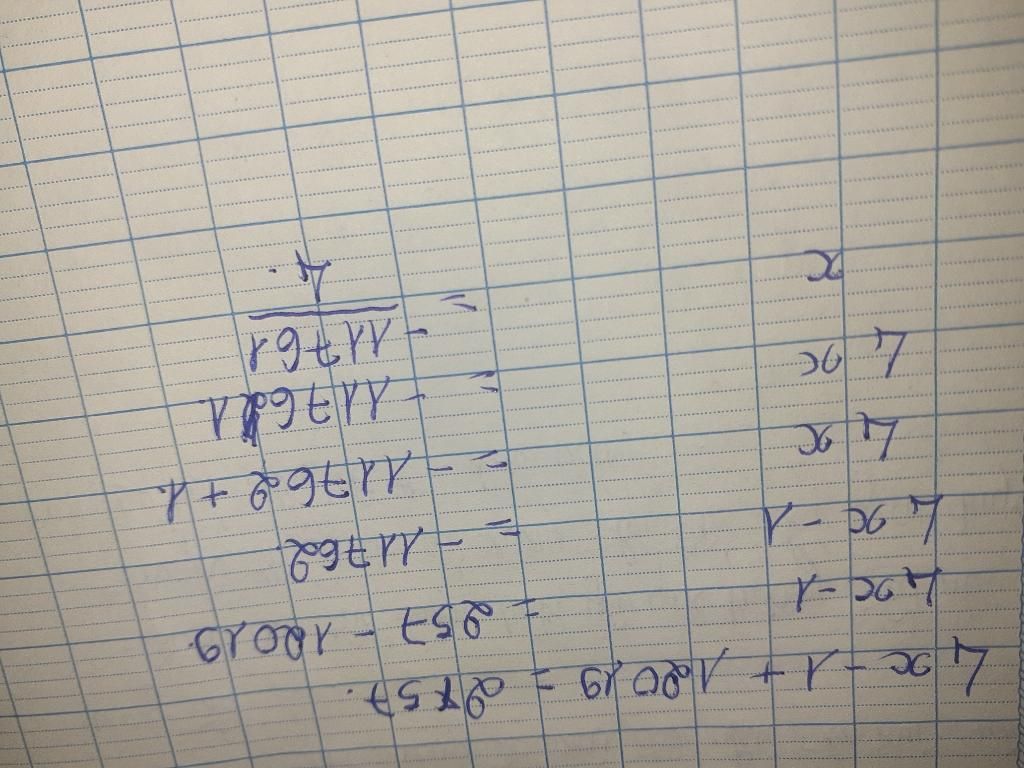 4x - 1 + 12019 = 257.
4x - 1 = 257 - 12019.
4x - 1 = - 11762.
4x = - 11762 + 1.
4x = - 11761.
x = - 11761
4.